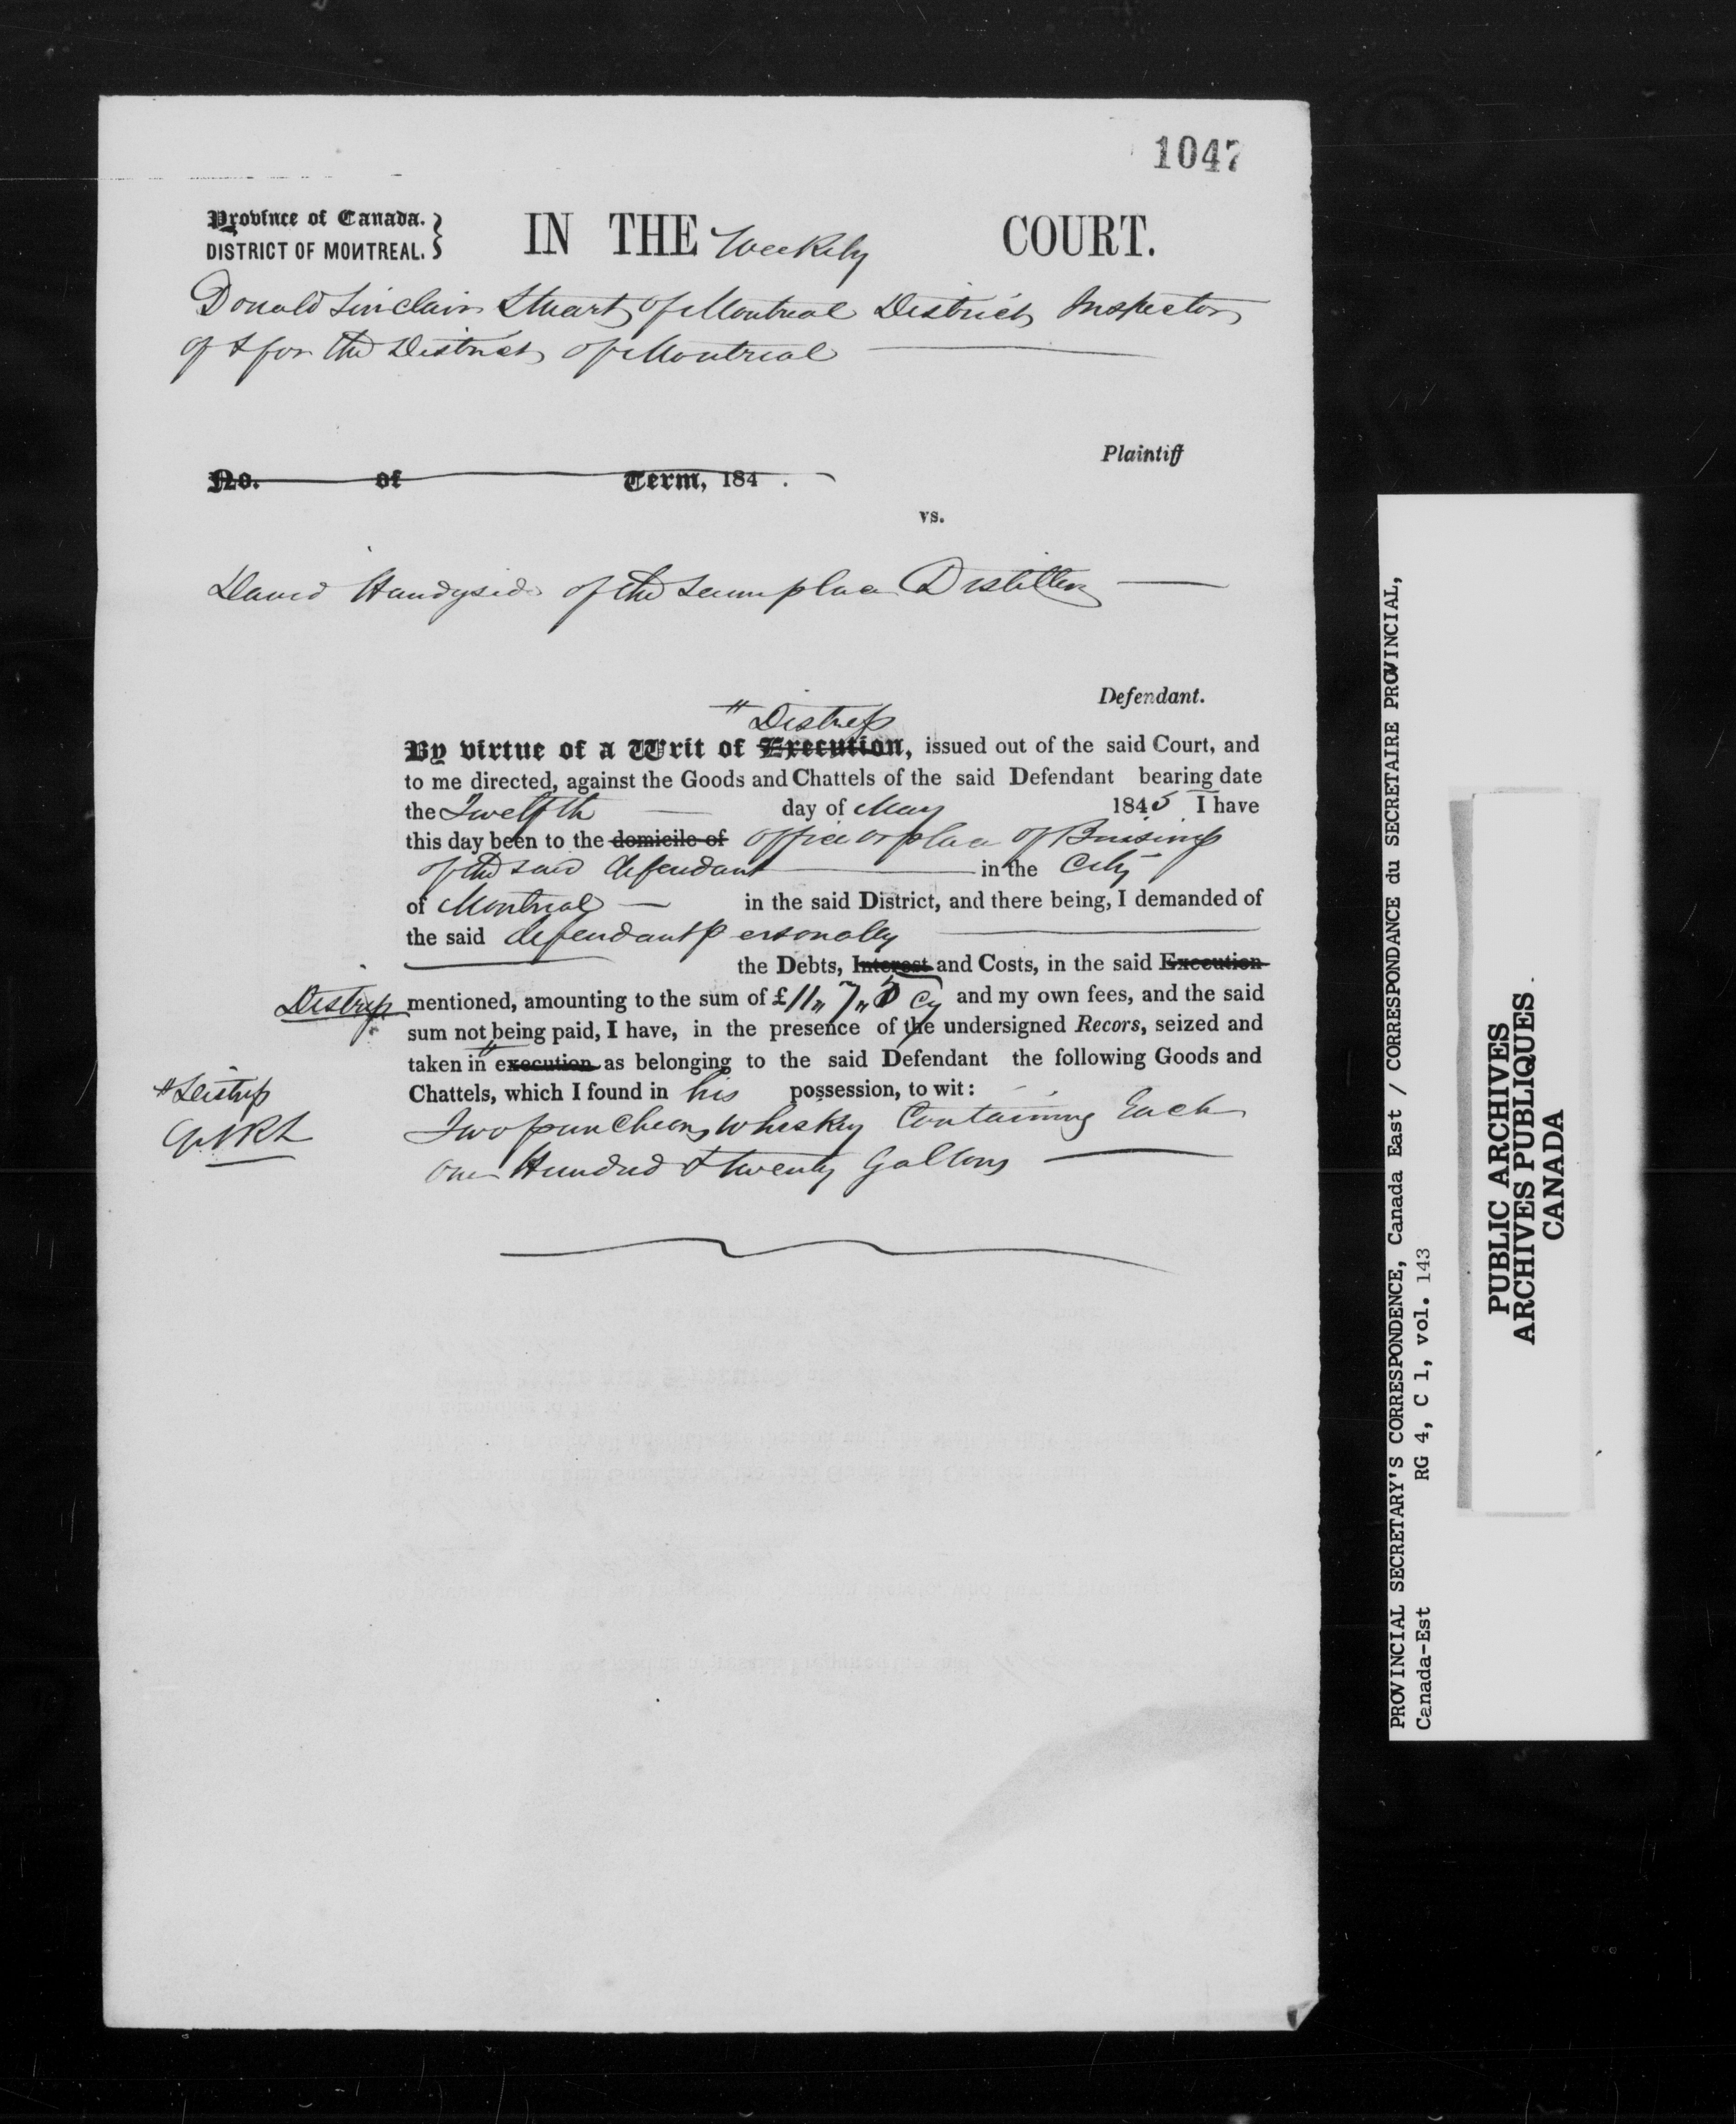 1047
Province of Canada.
DISTRICT OF MONTREAL.
IN THE Weekly COURT.
Donald Sinclair Stuart of Montreal District Inspector
of & for the District of Montreal
Plaintiff
No. of Term, 184 .
vs.
David Handyside of the same place Distiller
Defendant.
" Distress
By virtue of a Writ of Execution, issued out of the said Court, and
to me directed, against the Goods and Chattels of the said Defendant bearing date
the Twelfth day of May 1845 I have
this day been to the domicile of office or place of Business
of the said defendant in the City
of Montreal in the said District, and there being, I demanded of
the said defendant personally
the Debts, Interest and Costs, in the said Execution
Distress mentioned, amounting to the sum of £11,, 7,, Cy and my own fees, and the said
sum not being paid, I have, in the presence of the undersigned Recors, seized and
taken in execution as belonging to the said Defendant the following Goods and
" Distress
Chattels, which I found in his possession, to wit:
Two puncheons Whiskey Containing Each
One Hundred & twenty Gallons
PROVINCIAL SECRETARY'S CORRESPONDENCE, Canada East / CORRESPONDANCE du SECRETAIRE PROVINCIAL,
Canada-Est RG 4, C 1, vol. 143
PUBLIC ARCHIVES
ARCHIVES PUBLIQUES
CANADA